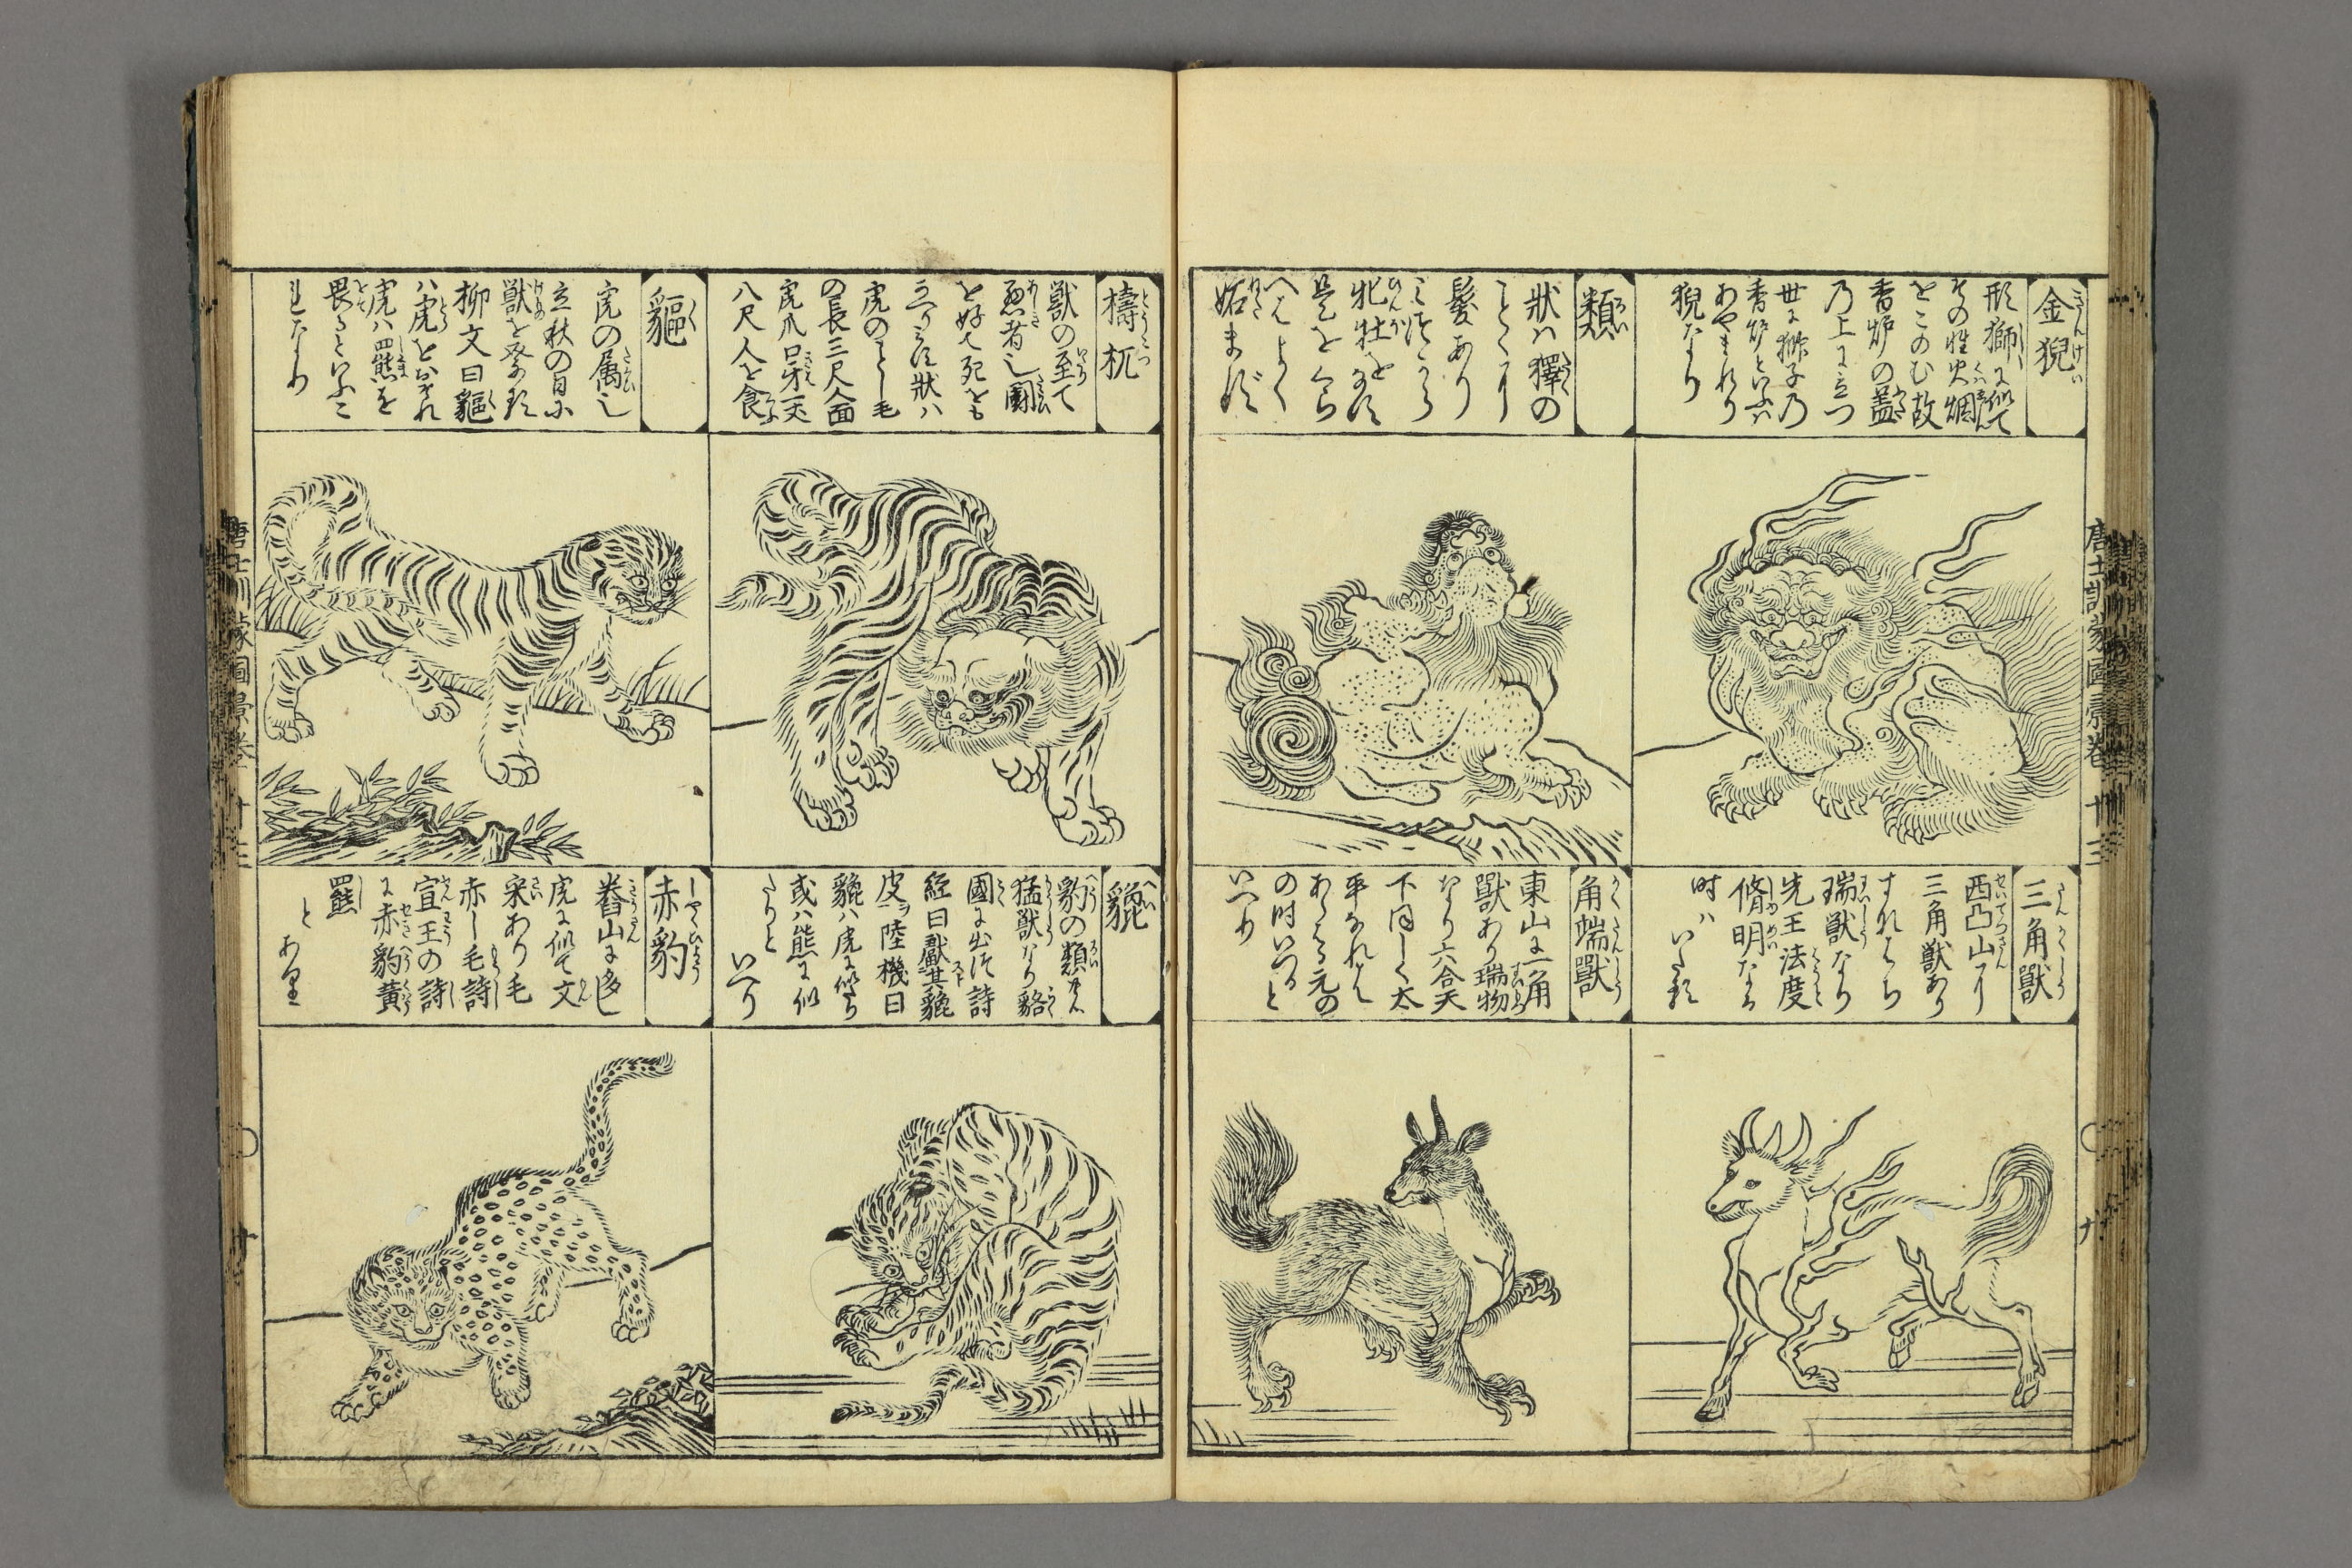 金猊
形獅に似て
その性火烟
をこのむ故
香炉の蓋
乃上に立つ
世に獅子乃
香炉といふハ
あやまれり
猊なり
類
状ハ獾の
ことくにして
髪あり
みづから
牝牡をなす
是をくら
へはよく
妬まず
三角獣
西凸山に
三角獣あり
すなはち
瑞獣なり
先王法度
脩明なる
時ハいたる
角端獣
東山に一角
獣あり瑞物
なり六合天
下同しく太
平なれは
あらはる元の
の时いつると
いへり
檮杌
獣の至て
悪者也闘
を好て死をも
かへりみす状ハ
虎のことし毛
の長三尺人面
虎爪口牙一丈
八尺人を食ふ
貙
虎の属也
立秋の日に
獣を祭る
柳文曰貙
ハ虎をおそれ
虎ハ羆を
畏るといふこ
れなり
貔
豹の類
猛獣なり貉
國に出づ詩
經曰獻其貔
皮ヲ陸機曰
貔ハ虎に似たり
或ハ熊に似
たりといへり
赤豹
春山に多し
虎に似て文
采あり毛
赤し毛詩
宣王の詩
に赤豹黄
羆
とあり
唐土訓蒙圖彙巻十三
唐土訓蒙圖彙巻十三